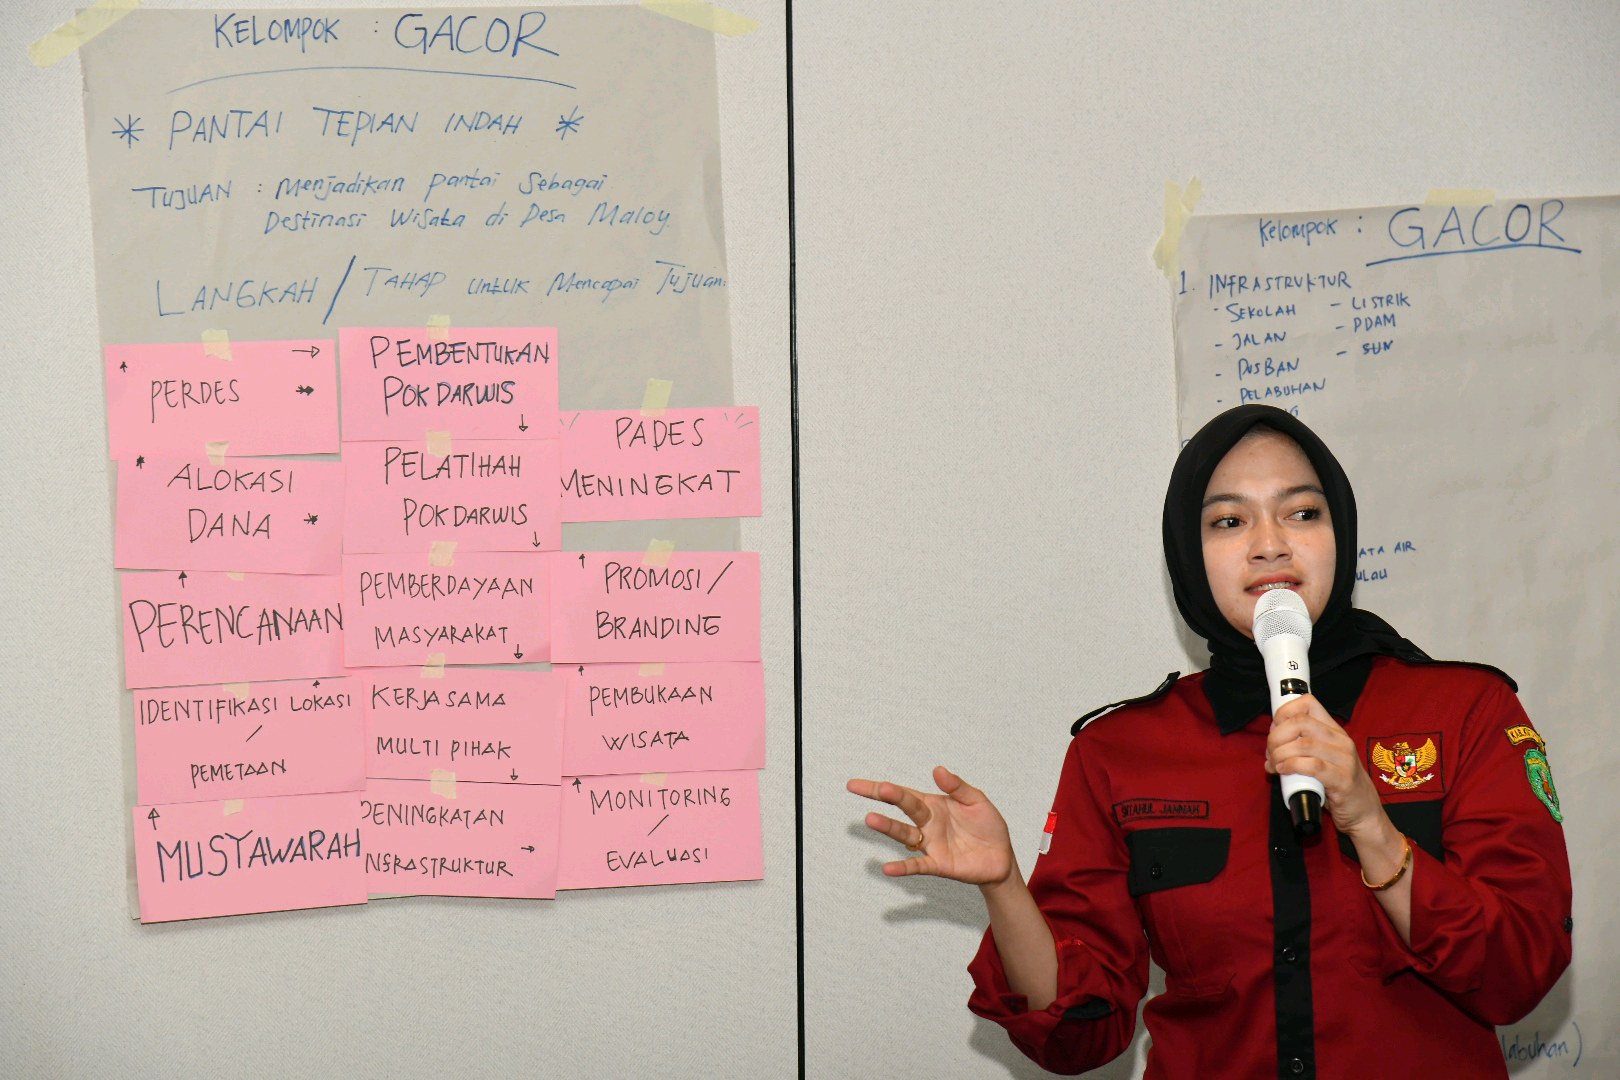 KELOMPOK : GACOR
* PANTAI TEPIAN INDAH *
TUJUAN : Menjadikan pantai Sebagai
Destinasi Wisata di Desa Maloy.
LANGKAH / TAHAP untuk Mencapai Tujuan:
PERDES
ALOKASI
DANA
PERENCANAAN
IDENTIFIKASI LOKASI
/
PEMETAAN
MUSYAWARAH
PEMBENTUKAN
POKDARWIS
PELATIHAH
POKDARWIS
PEMBERDAYAAN
MASYARAKAT
KERJASAMA
MULTI PIHAK
PENINGKATAN
INFRASTRUKTUR
PADES
MENINGKAT
PROMOSI /
BRANDING
PEMBUKAAN
WISATA
MONITORING
/
EVALUASI
Kelompok : GACOR
1. INFRASTRUKTUR
- SEKOLAH
- JALAN
- PUSBAN
- PELABUHAN
- LISTRIK
- PDAM
ATA AIR
ulau
labuhan)
JANNAH